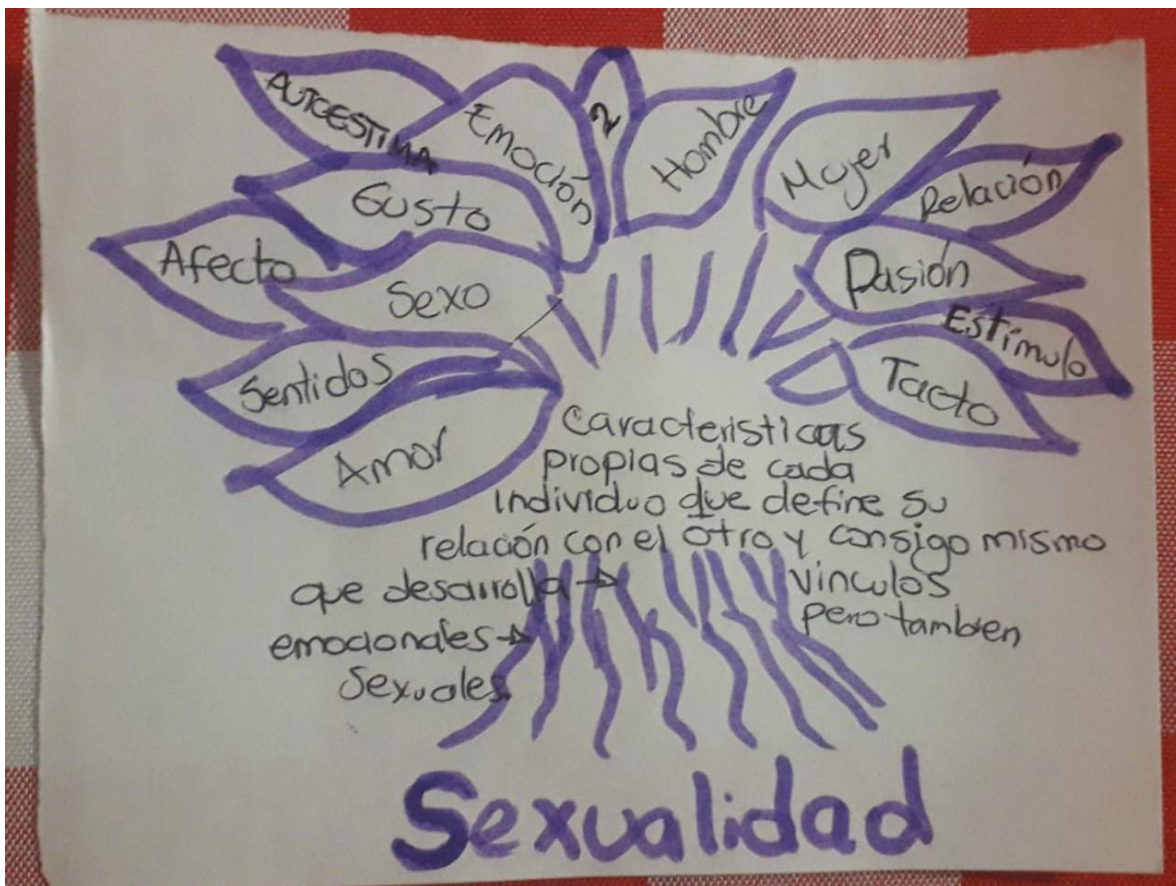 AUTOESTIMA
Emoción
2
Hombre
Mujer
Relación
Gusto
Afecto
Sexo
Pasión
Estímulo
Sentidos
Tacto
Amor
Caracteristicas
propias de cada
individuo que define su
relación con el otro y consigo mismo
que desarrolla → vinculos
emocionales → pero tambien
Sexuales.
Sexualidad